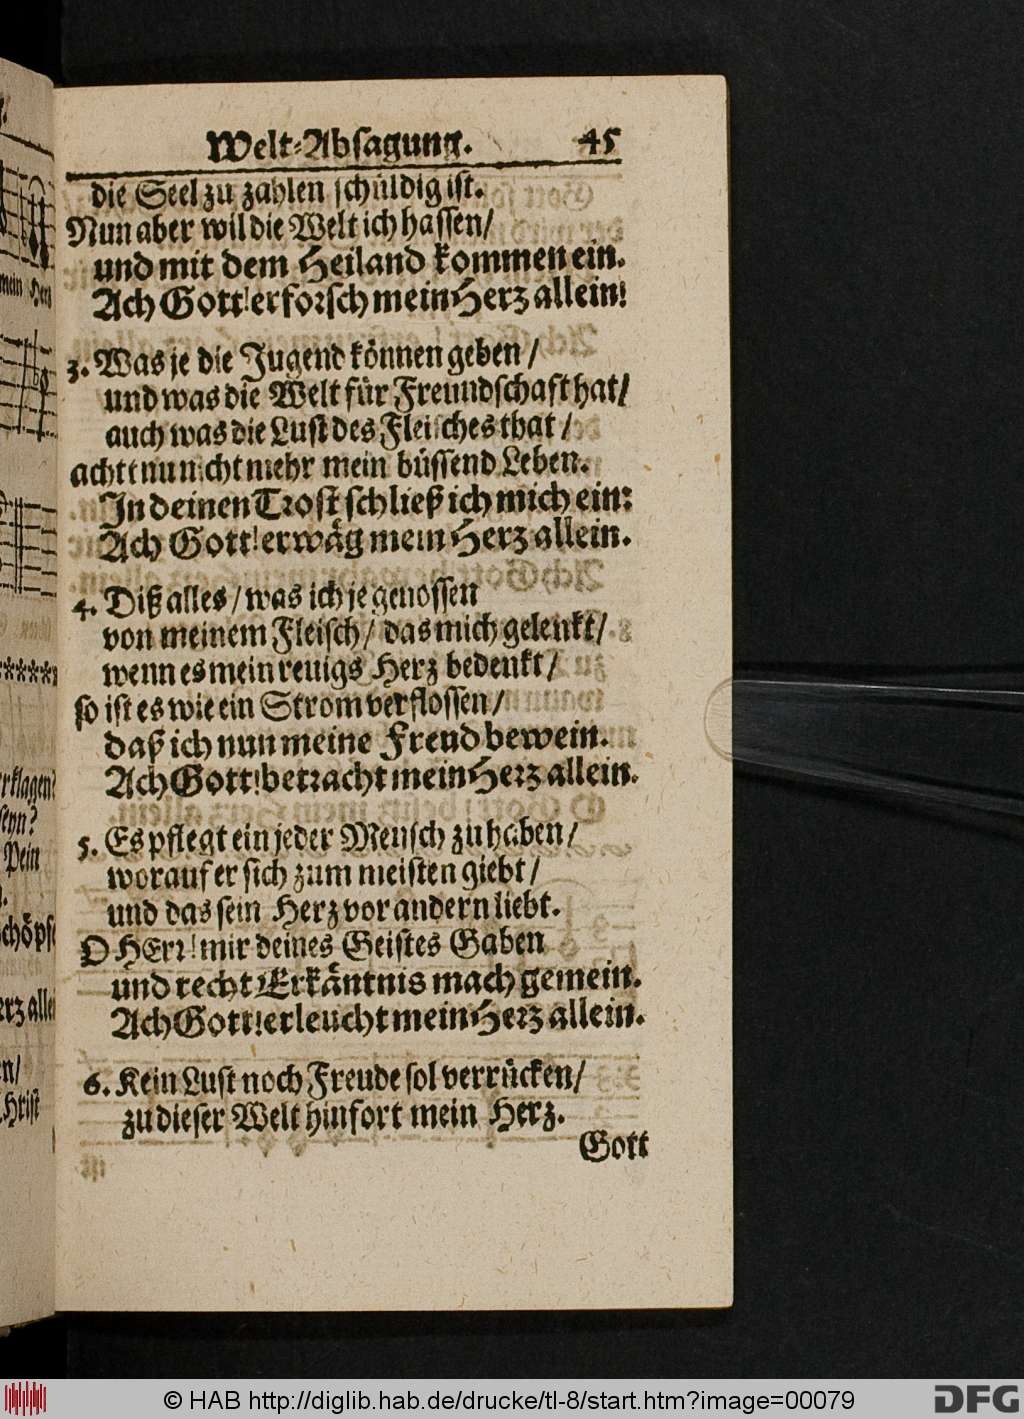 Welt-Absagung. 45
die Seel zu zahlen schüldig ist.
Nun aber wil die Welt ich hassen/
und mit dem Heiland kommen ein.
Ach Gott! erforsch mein Herz allein!
3. Was je die Jugend können geben/
und was die Welt für Freundschaft hat/
auch was die Lust des Fleisches that/
achtt nun nicht mehr mein büssend Leben.
In deinen Trost schließ ich mich ein:
Ach Gott! erwäg mein Herz allein.
4. Diß alles/ was ich je genossen
von meinem Fleisch/ das mich gelenkt/
wenn es mein reuigs Herz bedenkt/
so ist es wie ein Strom verflossen/
daß ich nun meine Freud bewein.
Ach Gott! betracht mein Herz allein.
5. Es pflegt ein jeder Mensch zu haben/
worauf er sich zum meisten giebt/
und das sein Herz vor andern liebt.
O HErr! mir deines Geistes Gaben
und recht Erkäntnis mach gemein.
Ach Gott! erleucht mein Herz allein.
6. Kein Lust noch Freude sol verrücken/
zu dieser Welt hinfort mein Herz.
Gott
mein Herz
rklagen?
seyn?
Pein
schöpf
rz allei
en/
Christ
© HAB http://diglib.hab.de/drucke/tl-8/start.htm?image=00079
DFG